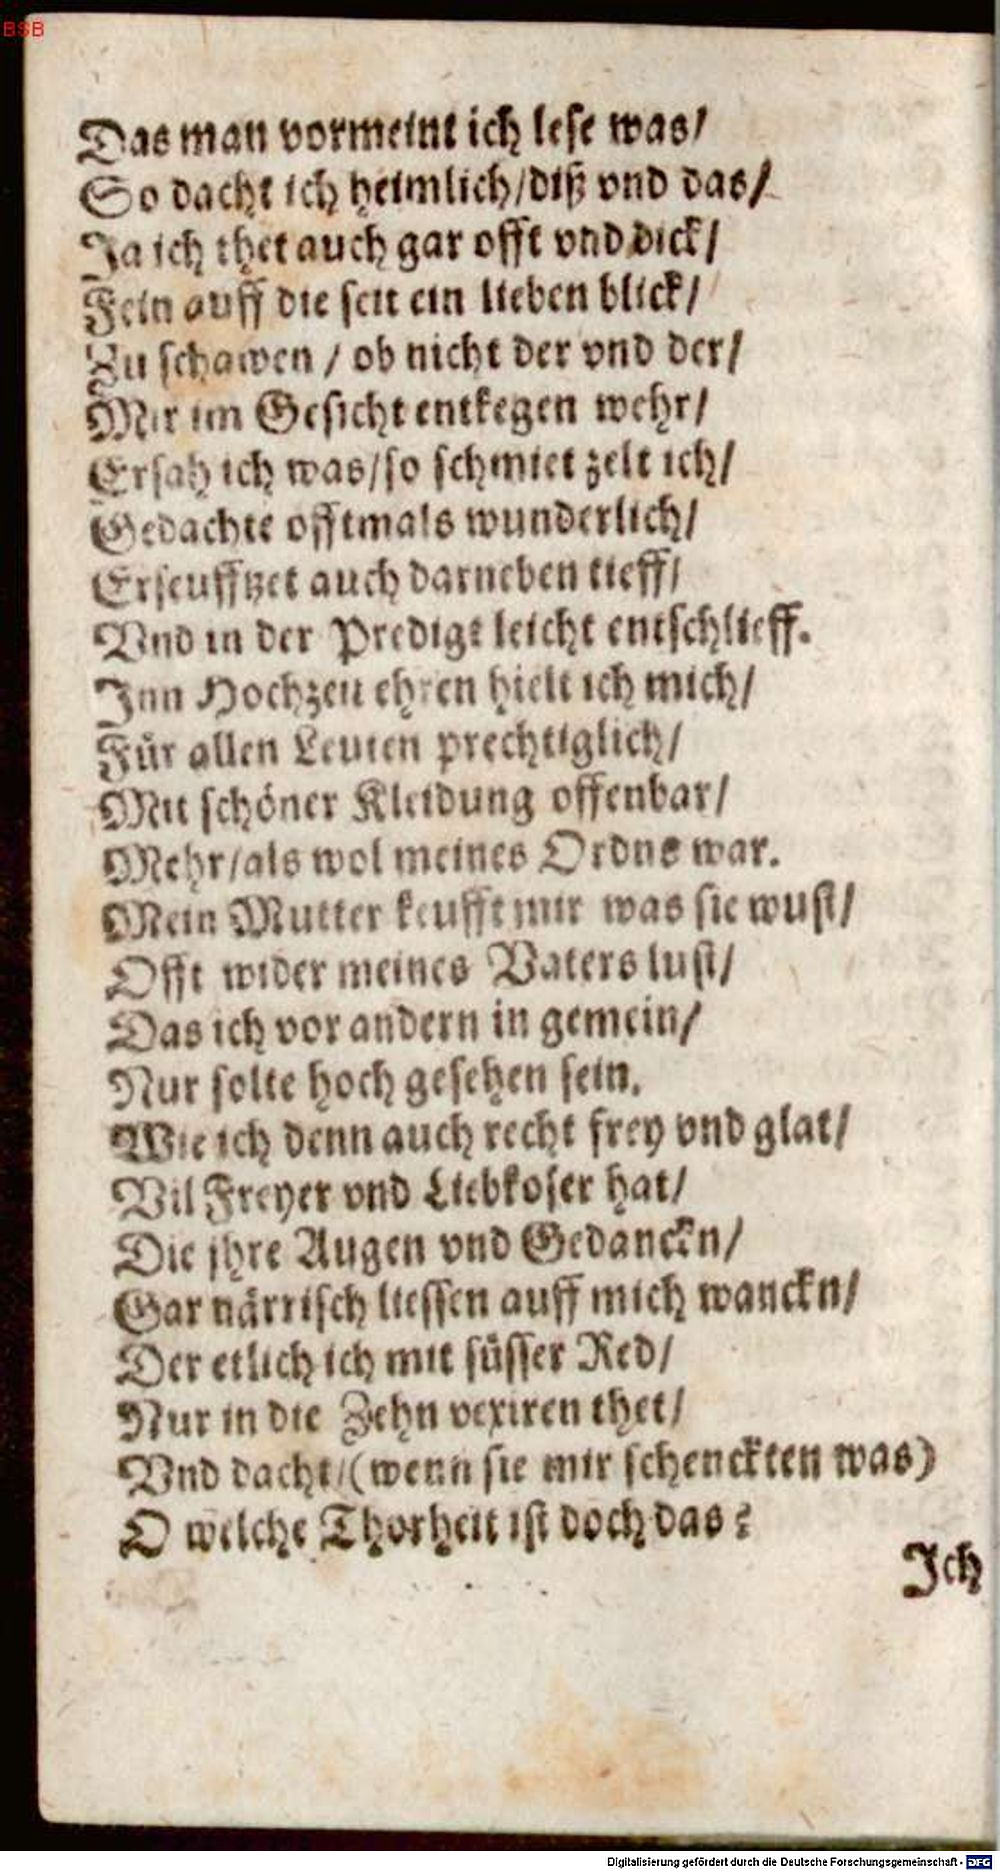 BSB
Das man vormeint ich lese was/
So dacht ich heimlich/diß vnd das/
Ja ich thet auch gar offt vnd dick/
Fein auff die seit ein lieben blick/
Zu schawen / ob nicht der vnd der/
Mir im Gesicht entkegen wehr/
Ersah ich was/so schmietzelt ich/
Gedachte offtmals wunderlich/
Erseufftzet auch darneben tieff/
Vnd in der Predigt leicht entschlieff.
Inn Hochzeit ehren hielt ich mich/
Für allen Leuten prechtiglich/
Mit schöner Kleidung offenbar/
Mehr/als wol meines Ordns war.
Mein Mutter keufft mir was sie wust/
Offt wider meines Vaters lust/
Das ich vor andern in gemein/
Nur solte hoch gesehen sein.
Wie ich denn auch recht frey vnd glat/
Vil Freyer vnd Liebkoser hat/
Die jhre Augen vnd Gedanckn/
Gar närrisch liessen auff mich wanckn/
Der etlich ich mit süsser Red/
Nur in die Zehn vexiren thet/
Vnd dacht/(wenn sie mir schenckten was)
O welche Thorheit ist doch das?
Ich
Digitalisierung gefördert durch die Deutsche Forschungsgemeinschaft - DFG